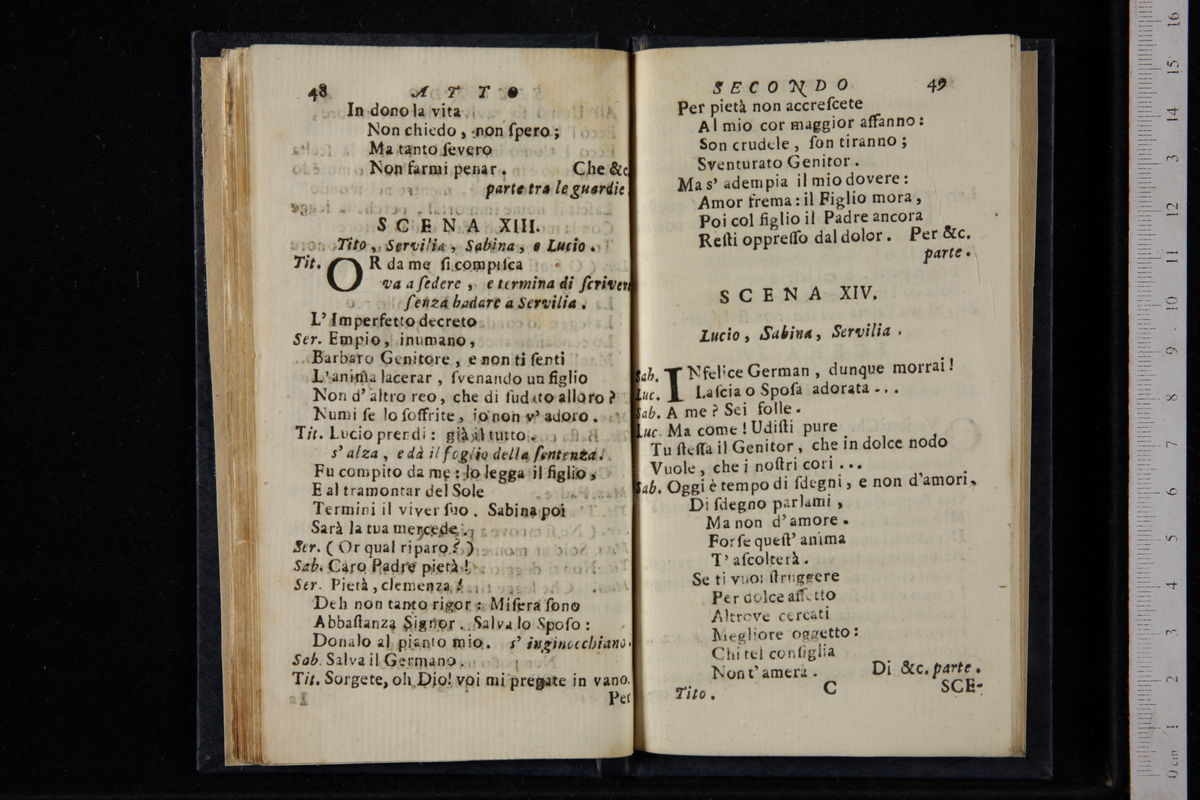 48 ATTO
In dono la vita
Non chiedo, non ſpero;
Ma tanto ſevero
Non farmi penar. Che &c.
parte tra le guardie
SCENA XIII.
Tito, Servilia, Sabina, e Lucio.
Tit. OR da me ſi compiſca
va a ſedere, e termina di ſcriver
ſenza badare a Servilia.
L' Imperfetto decreto
Ser. Empio, inumano,
Barbaro Genitore, e non ti ſenti
L'anima lacerar, ſvenando un figlio
Non d'altro reo, che di ſudato alloro?
Numi ſe lo ſoffrite, io non v' adoro.
Tit. Lucio prendi: già il tutto.
s' alza, e dà il foglio della ſentenza.
Fu compito da me: lo legga il figlio,
E al tramontar del Sole
Termini il viver ſuo. Sabina poi
Sarà la tua mercede.
Ser. (Or qual riparo?)
Sab. Caro Padre pietà!
Ser. Pietà, clemenza!
Deh non tanto rigor: Miſera ſono
Abbaſtanza Signor. Salva lo Spoſo:
Donalo al pianto mio. s' inginocchiano.
Sab. Salva il Germano.
Tit. Sorgete, oh Dio! voi mi pregate in vano.
Per
SECONDO 49
Per pietà non accreſcete
Al mio cor maggior affanno:
Son crudele, ſon tiranno;
Sventurato Genitor.
Ma s' adempia il mio dovere:
Amor frema: il Figlio mora,
Poi col figlio il Padre ancora
Reſti oppreſſo dal dolor. Per &c.
parte.
SCENA XIV.
Lucio, Sabina, Servilia.
Sab. INfelice German, dunque morrai!
Luc. Laſcia o Spoſa adorata...
Sab. A me? Sei folle.
Luc. Ma come! Udiſti pure
Tu ſteſſa il Genitor, che in dolce nodo
Vuole, che i noſtri cori...
Sab. Oggi è tempo di ſdegni, e non d'amori.
Di ſdegno parlami,
Ma non d'amore.
Forſe queſt' anima
T' aſcolterà.
Se ti vuoi ſtruggere
Per dolce affetto
Altrove cercati
Megliore oggetto:
Chi tel conſiglia
Non t' amerà. Di &c. parte.
Tito. C SCE-
0 cm 1 2 3 4 5 6 7 8 9 10 11 12 13 14 15 16